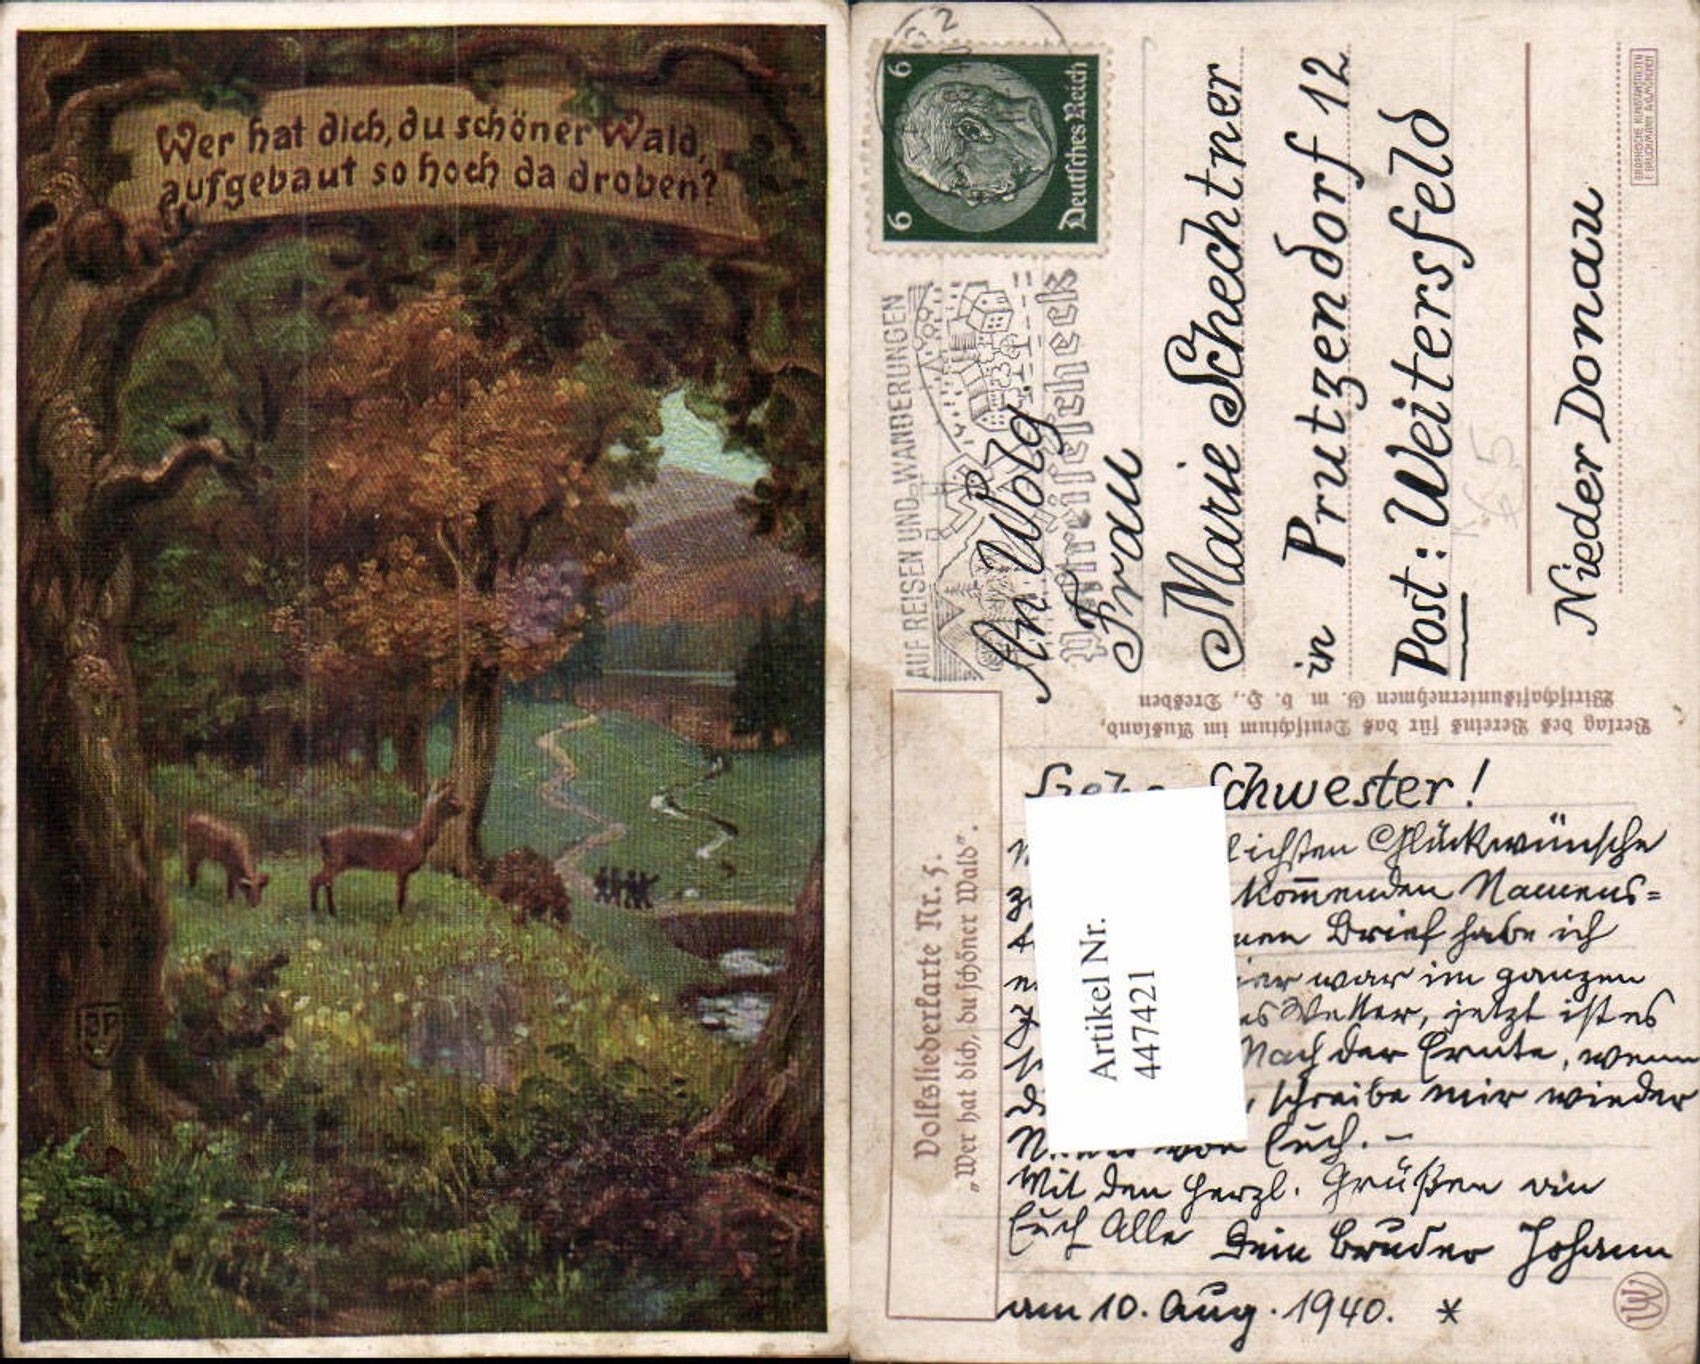 Wer hat dich, du schöner Wald,
aufgebaut so hoch da droben?
6
6
Deutsches Reich
AUF REISEN UND WANDERUNGEN
Postreisescheck
An Wolg
Frau
Marie Schechtner
in Prutzendorf 12
Post: Weitersfeld
Nieder Donau
GRAPHISCHE KUNSTANSTALTEN
F. BRUCKMANN A.G. MÜNCHEN
Verlag des Vereins für das Deutschtum im Ausland,
Wirtschaftsunternehmen G. m. b. H., Dresden
Volksliederkarte Nr. 5.
„Wer hat dich, du schöner Wald".
Artikel Nr.
447421
Schwester!
lichsten Glückwünsche
kommenden Namens=
nen Brief habe ich
war im ganzen
Wetter, jetzt ist es
Nach der Ernte, wenn
, schreibe mir wieder
von Euch. –
Mit den herzl. Grüßen an
Euch Alle Dein Bruder Johann
am 10. Aug. 1940. *